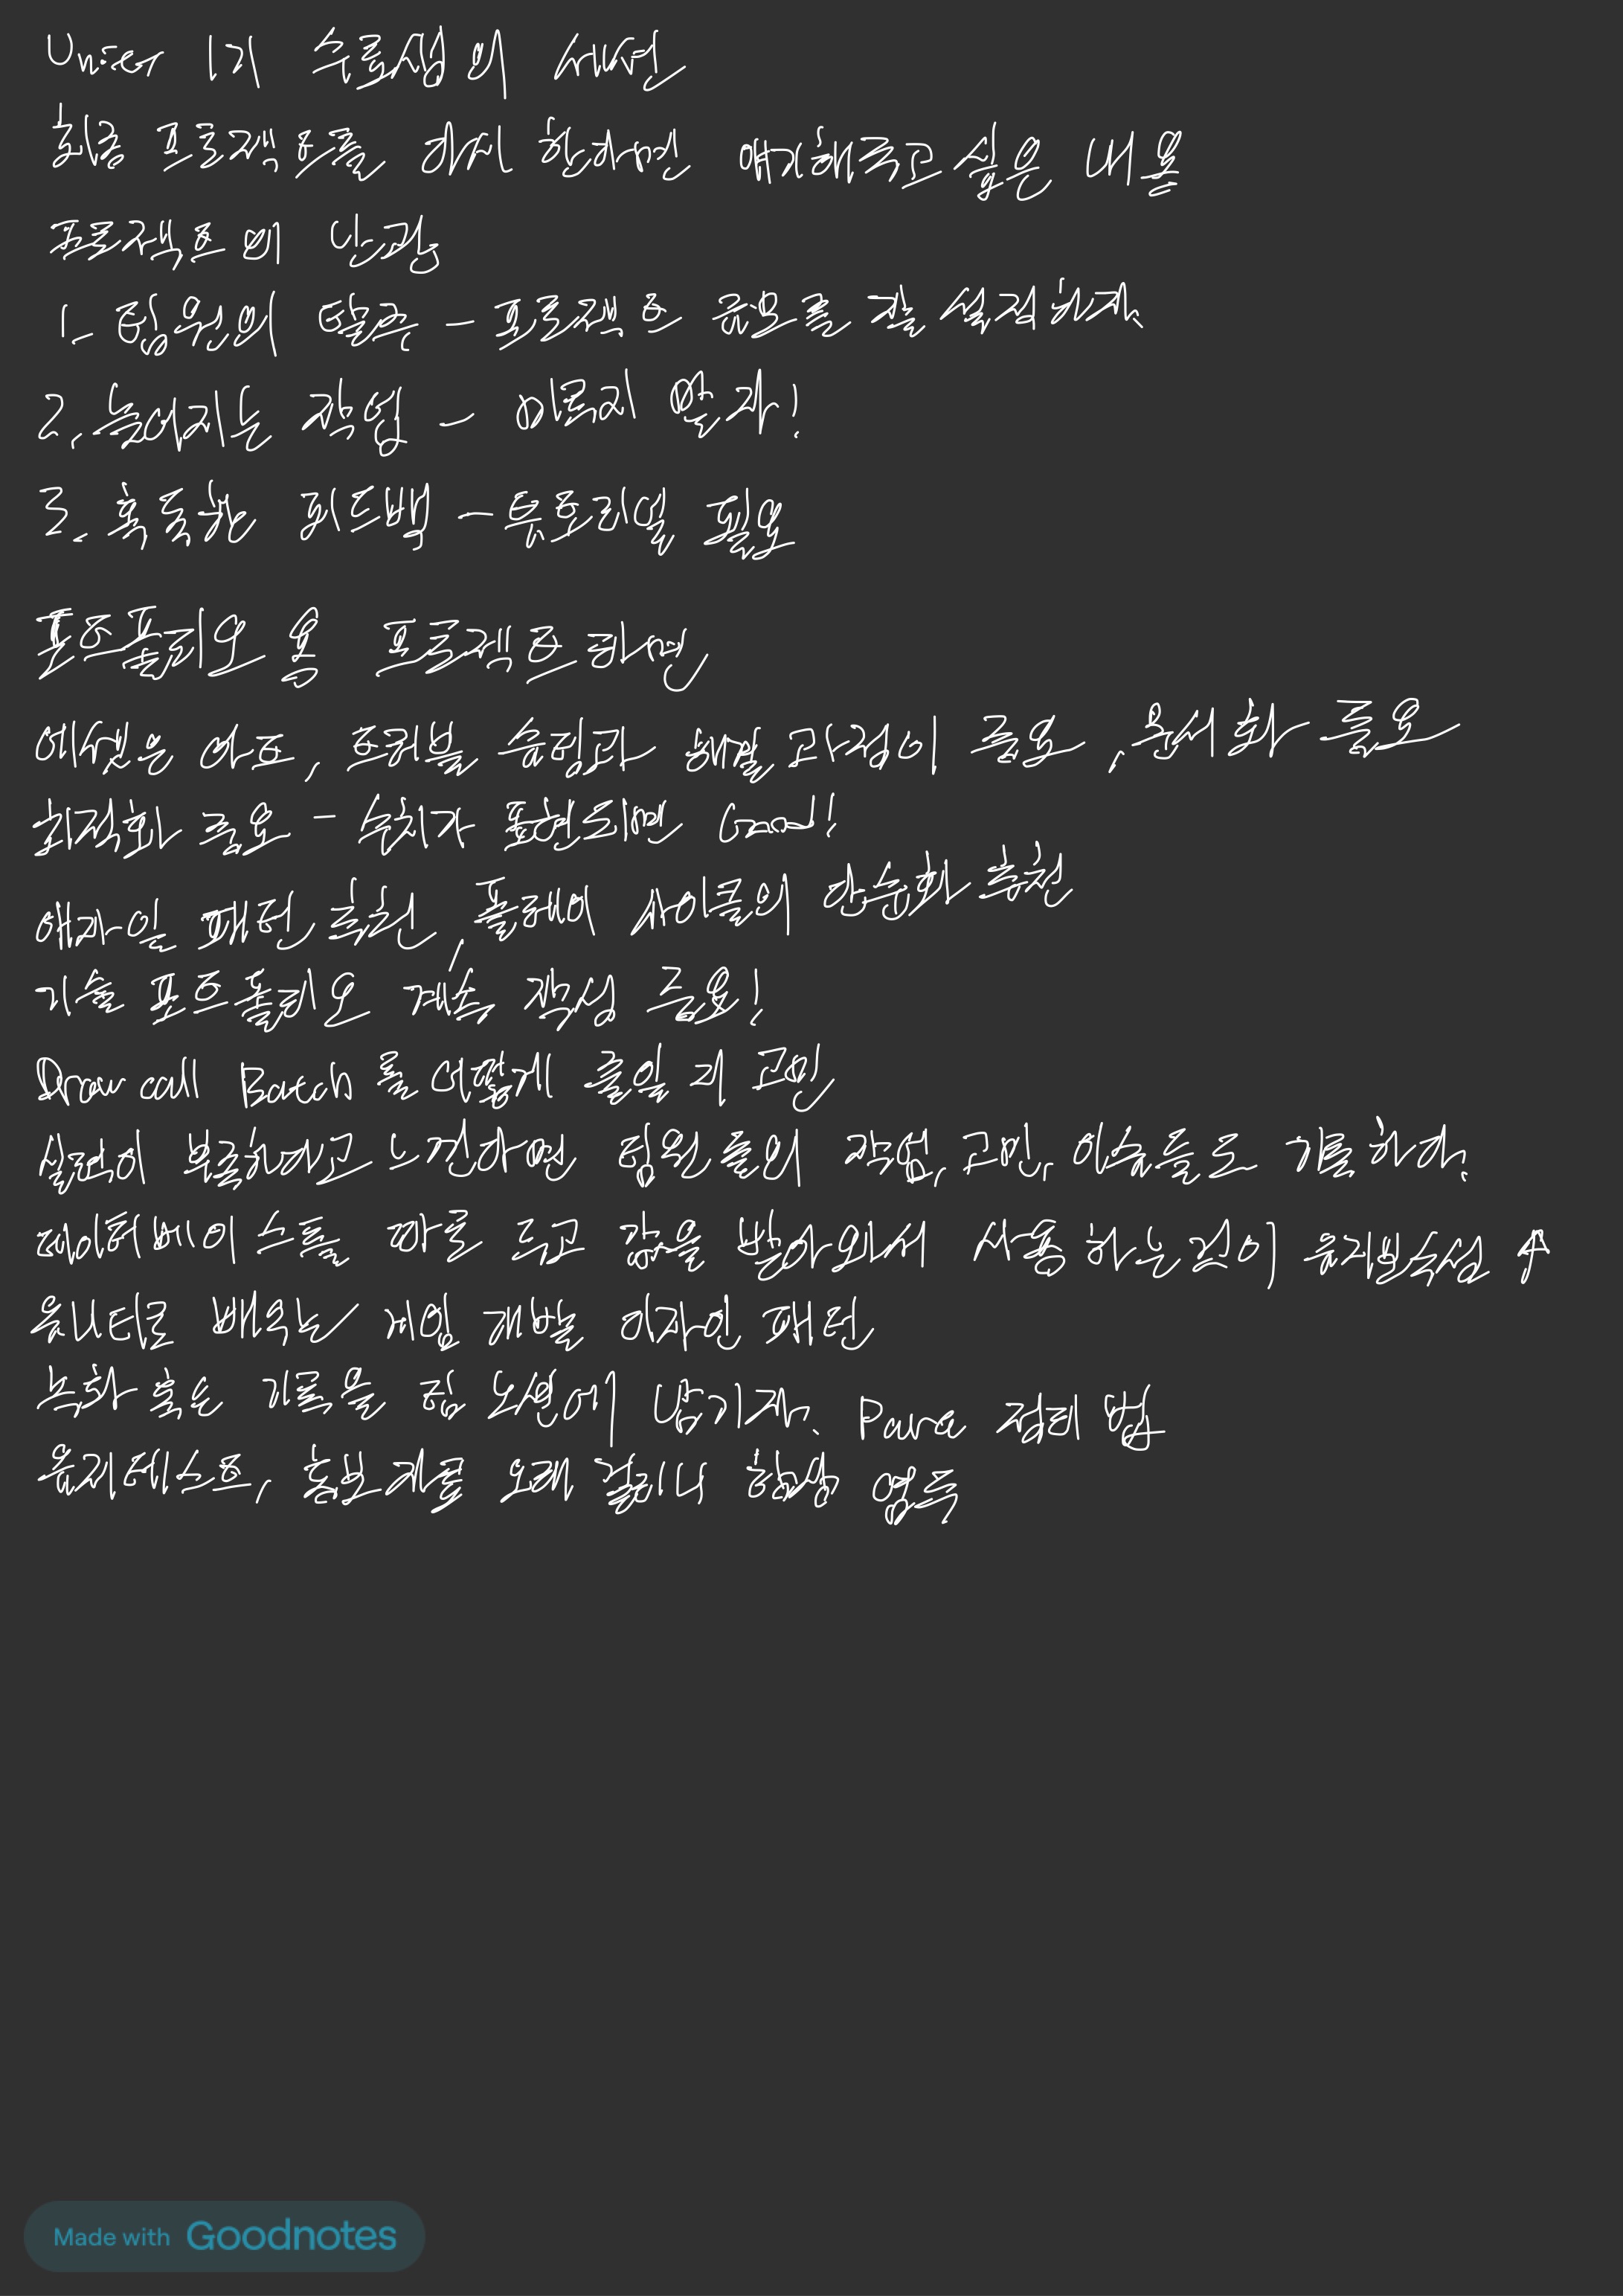 Unity 1기 수료생의 세션
최종 프로젝트를 다시 한다면 얘기해주고 싶은 내용
프로젝트의 난관
1. 팀원의 탈주 - 프로젝트 규모를 잘 설정하자.
2. 늦어지는 작업 - 미루지 말자!
3. 혹독한 피드백 - 튜토리얼 필요
포트폴리오 용 프로젝트라면
에셋은 아트, 트러블 슈팅과 해결과정이 중요, 문서화 중요
최적화 중요 - 수치가 포함되면 Good!
디자인 패턴 추천, 둘레에 사이클의 단순화 추천
기술 포트폴리오 계속 작성 중요!
Draw call Batch를 어떻게 줄일 지 고민
실력이 부족하다고 느낀다면 팀원들의 작업, 고민, 이슈들도 기록하자.
데이터베이스를 따로 두고 값을 받아와서 사용하는 것이 유지보수성 ↑
유니티로 배우는 게임 개발 디자인 패턴
녹화 혹은 기록을 꼭 노션에 남기자. Para 정리 법
유저테스트, 홍보 계획 오래 걸리니 항상 염두